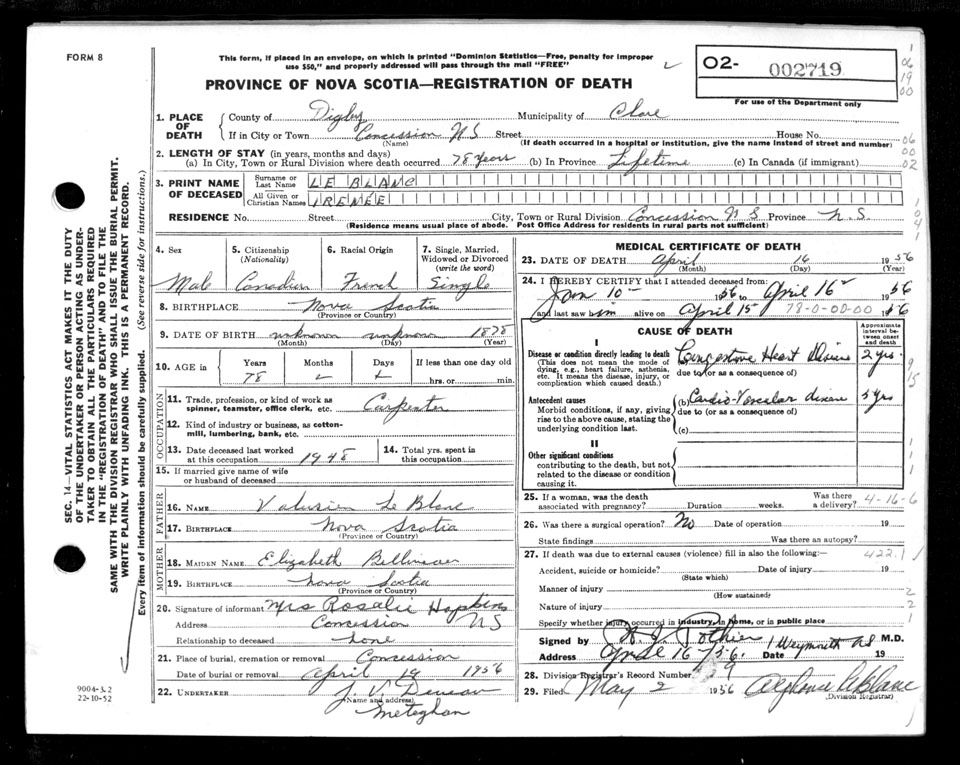 FORM 8
This form, if placed in an envelope, on which is printed "Dominion Statistics—Free, penalty for improper
use $50," and properly addressed will pass through the mail "FREE"
PROVINCE OF NOVA SCOTIA—REGISTRATION OF DEATH
O2- 002719
For use of the Department only
1. PLACE OF DEATH
County of Digby Municipality of Clare
If in City or Town Concession N S Street House No.
(Name) (If death occurred in a hospital or institution, give the name instead of street and number)
2. LENGTH OF STAY (in years, months and days)
(a) In City, Town or Rural Division where death occurred 78 Years (b) In Province Lifetime (c) In Canada (if immigrant)
3. PRINT NAME OF DECEASED
Surname or Last Name LE BLANC
All Given or Christian Names IRENEE
RESIDENCE No. Street City, Town or Rural Division Concession N S Province N.S.
(Residence means usual place of abode. Post Office Address for residents in rural parts not sufficient)
4. Sex 5. Citizenship (Nationality) 6. Racial Origin 7. Single, Married, Widowed or Divorced (write the word)
Male Canadian French Single
8. BIRTHPLACE Nova Scotia
(Province or Country)
9. DATE OF BIRTH unknown unknown 1878
(Month) (Day) (Year)
10. AGE in Years Months Days If less than one day old
78 hrs. or min.
OCCUPATION
11. Trade, profession, or kind of work as
spinner, teamster, office clerk, etc. Carpenter
12. Kind of industry or business, as cotton-
mill, lumbering, bank, etc.
13. Date deceased last worked
at this occupation 1948
14. Total yrs. spent in
this occupation
15. If married give name of wife
or husband of deceased
FATHER
16. NAME Le Blanc
17. BIRTHPLACE Nova Scotia
(Province or Country)
MOTHER
18. MAIDEN NAME Elizabeth
19. BIRTHPLACE Nova Scotia
(Province or Country)
20. Signature of informant Mrs Rosalie Hopkins
Address Concession NS
Relationship to deceased none
21. Place of burial, cremation or removal Concession
Date of burial or removal April 19 1956
22. UNDERTAKER J. V.
(Name and address)
Meteghan
MEDICAL CERTIFICATE OF DEATH
23. DATE OF DEATH April 16 1956
(Month) (Day) (Year)
24. I HEREBY CERTIFY that I attended deceased from:
Jan 10 1956 to April 16 1956
and last saw him alive on April 15 78-0-00-00 1956
CAUSE OF DEATH
Approximate interval between onset and death
I
Disease or condition directly leading to death
(This does not mean the mode of
dying, e.g., heart failure, asthenia,
etc. It means the disease, injury, or
complication which caused death.)
Congestive Heart Disease 2 yrs.
due to (or as a consequence of)
Antecedent causes
Morbid conditions, if any, giving
rise to the above cause, stating the
underlying condition last.
(b) Cardio-Vascular disease 5 yrs
due to (or as a consequence of)
(c)
II
Other significant conditions
contributing to the death, but not
related to the disease or condition
causing it.
25. If a woman, was the death
associated with pregnancy? Duration weeks. Was there a delivery? 4-16-6
26. Was there a surgical operation? No Date of operation 19
State findings Was there an autopsy?
27. If death was due to external causes (violence) fill in also the following:— 422.1
Accident, suicide or homicide? Date of injury 19
(State which)
Manner of injury
(How sustained)
Nature of injury
Specify whether injury occurred in industry, in home, or in public place
Signed by Pothier Weymouth NS M.D.
Address April 16/56 Date 19
28. Division Registrar's Record Number 29
29. Filed May 2 1956 Alphonse LeBlanc
(Division Registrar)
SEC. 14—VITAL STATISTICS ACT MAKES IT THE DUTY
OF THE UNDERTAKER OR PERSON ACTING AS UNDER-
TAKER TO OBTAIN ALL THE PARTICULARS REQUIRED
IN THE "REGISTRATION OF DEATH" AND TO FILE THE
SAME WITH THE DIVISION REGISTRAR WHO SHALL ISSUE THE BURIAL PERMIT.
WRITE PLAINLY WITH UNFADING INK. THIS IS A PERMANENT RECORD.
Every item of information should be carefully supplied. (See reverse side for instructions.)
9004-3.2
22-10-52